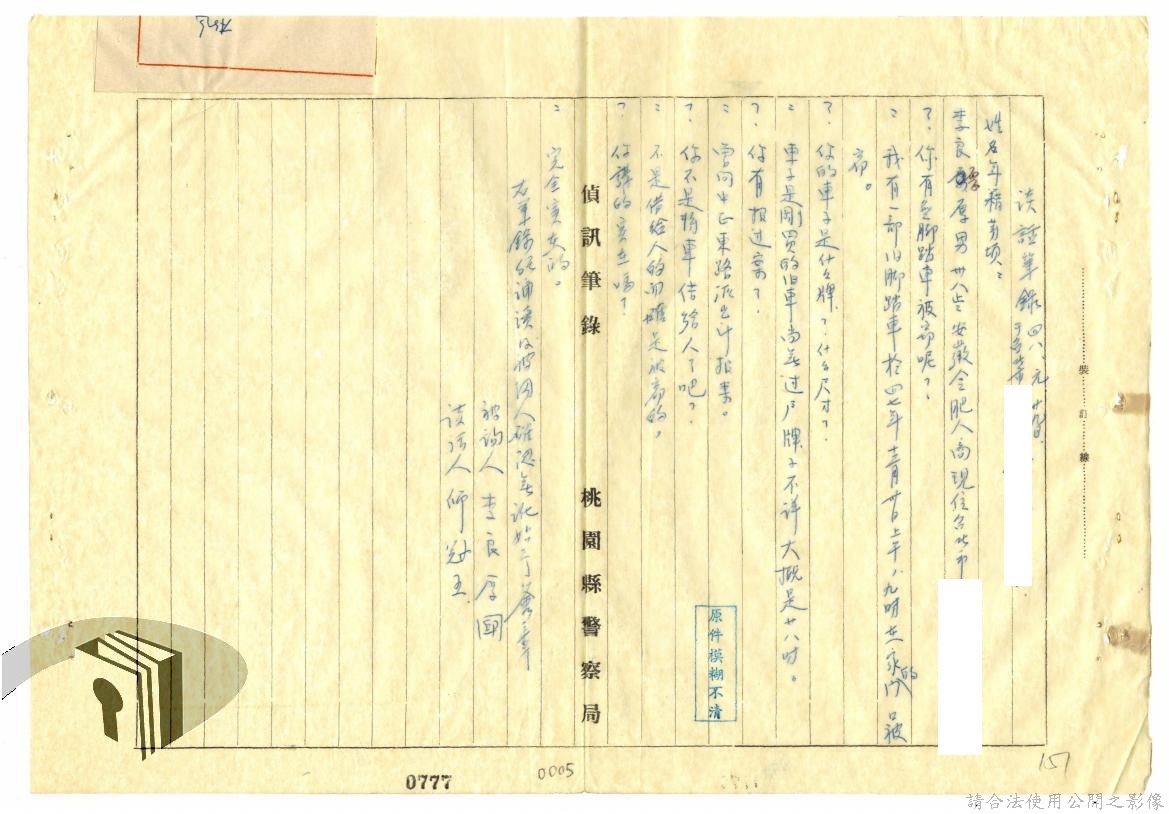 談話筆錄 四八、元、廿四、
于
姓名年籍等項：
李良厚 男 卅八岁 安徽合肥人 商 現住台北市
？、你有無腳踏車被竊呢？
：我有一部旧脚踏車於四七年十二月廿日上午八、九時在家的门口被
竊。
？、你的車子是什么牌？、什么尺寸？、
：車子是剛買的旧車尚無过户牌子不詳大概是廿八吋。
？、你有报过案？、
：曾向中正東路派出所报案。
？、你不是將車借給人了吧？、
：不是借给人的而確是被竊的。
？、你講的實在嗎？、
：完全實在的。
右筆錄經誦讀後被询人確認無訛始予簽章
被詢人 李良厚
談话人 師
偵訊筆錄
桃園縣警察局
裝 訂 線
原件模糊不清
0777
0005
151
請合法使用公開之影像